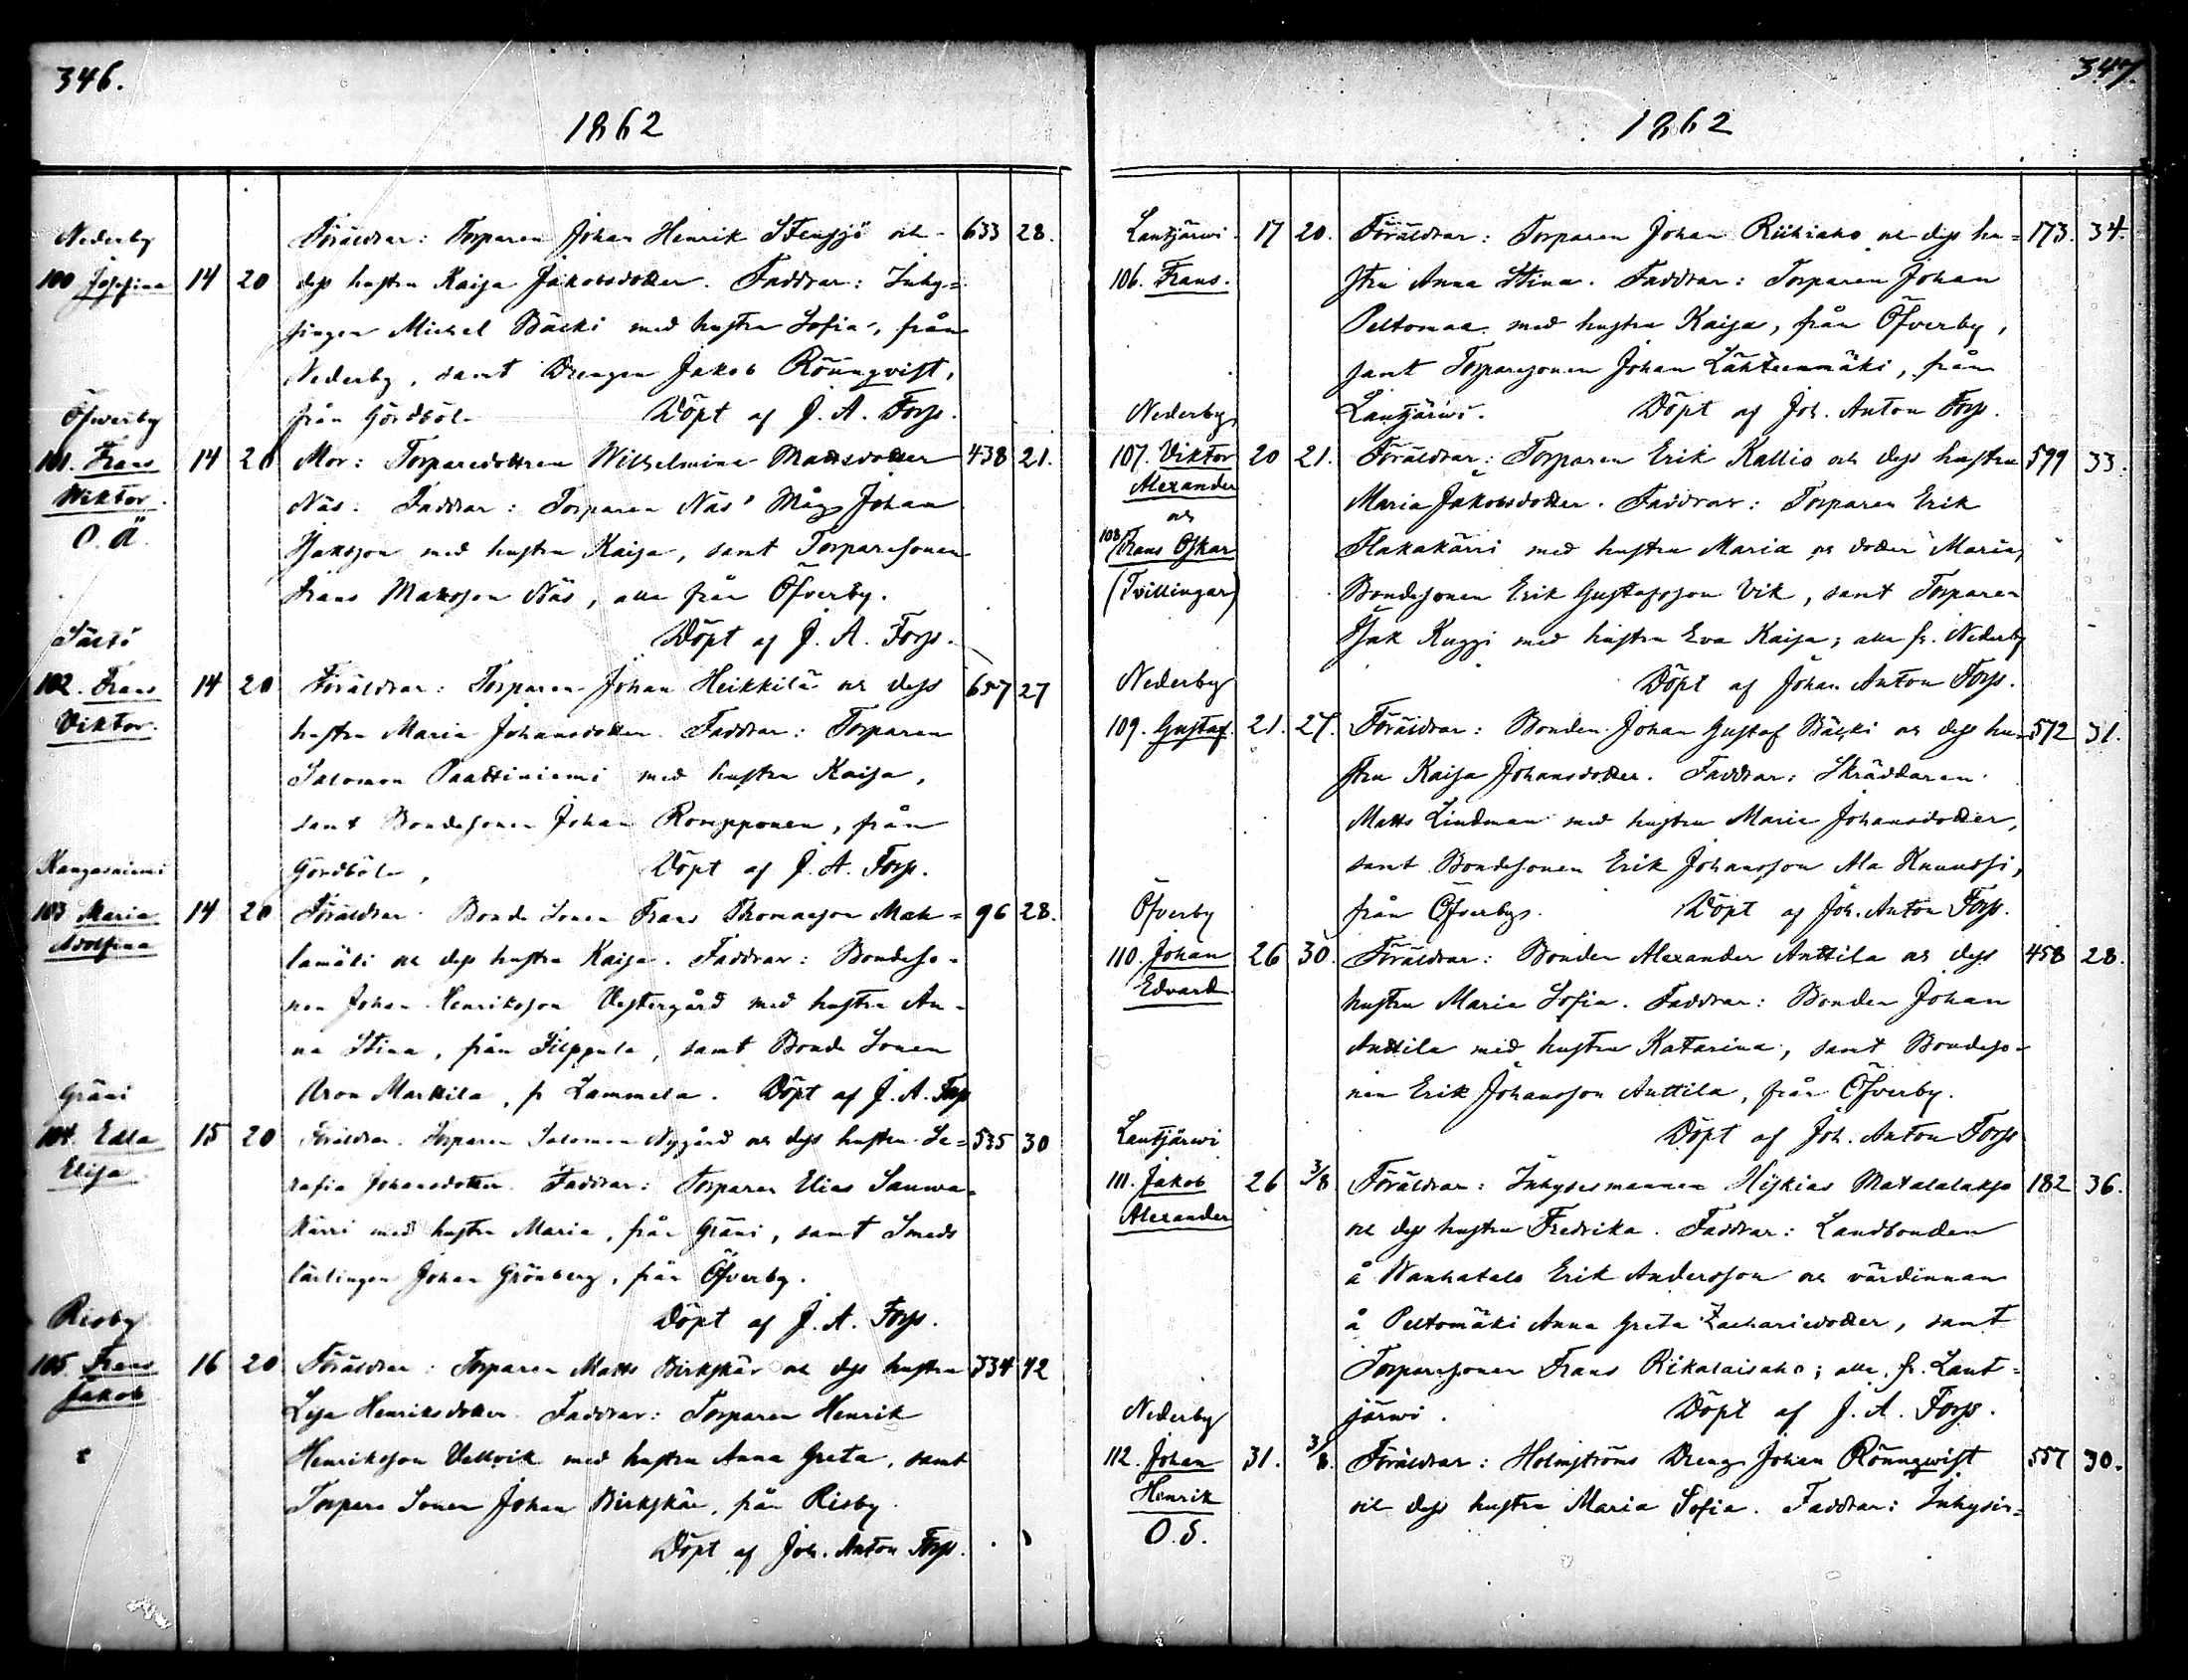 346.
1862
Nederby
Föräldrar: Torparen Johan Henrik Stensjö och 633 28.
100 Josefina 14 20 dess hustru Kaisa Jakobsdotter. Faddrar: Inhy-
singen Michel Bäcki med hustru Sofia, från
Nederby, samt Drengen Jakob Rönnqvist,
från Gördböle Döpt af J. A. Forss.
Öfverby
101. Frans 14 20 Mor: Torparedottren Wilhelmina Mattsdotter 438 21.
Wiktor. Näs. Faddrar: Torparen Näs' Måg Johan
O. Ä. Isaksson med hustru Kaisa, samt Torparesonen
Frans Matsson Näs, alla från Öfverby.
Döpt af J. A. Forss.
102. Frans 14 20 Föräldrar: Torparen Johan Heikkilä och dess 657 27
Viktor. hustru Maria Johansdotter. Faddrar: Torparen
Salomon Paattiniemi med hustru Kaisa,
samt Bondesonen Johan Rompponen, från
Gördböle, Döpt af J. A. Forss.
Kangasniemi
103 Maria 14 20 Föräldrar: Bonde Sonen Frans Thomasson Mat- 96 28.
Adolfina lamäki och dess hustru Kaisa. Faddrar: Bondeso-
nen Johan Henriksson Vestergård med hustru An-
na Stina, från Filppula, samt Bonde Sonen
Aron Markila, fr Lammela. Döpt af J. A. Forss
Gräni
104. Edla 15 20 Föräldrar. Torparen Salomon Nygård och dess hustru Se- 535 30
Elisa rafia Johansdotter. Faddrar: Torparen Elias Sauwa-
kärri med hustru Maria, från Gräni, samt Smeds
lärlingen Johan Grönberg, från Öfverby.
Döpt af J. A. Forss.
Risby
105. Frans 16 20 Föräldrar: Torparen Matts Birkskär och dess hustru 334 42
Jakob Lisa Henriksdotter. Faddrar: Torparen Henrik
Henriksson Vellvik med hustru Anna Greta, samt
Torpare Sonen Johan Birkskär, från Risby.
Döpt af Joh. Anton Forss.
347.
1862
Lantjärwi. 17 20. Föräldrar: Torparen Johan Riihiaho och dess hu- 173. 34.
106. Frans. stru Anna Stina. Faddrar: Torparen Johan
Peltomaa med hustru Kaisa, från Öfverby,
samt Torparesonen Johan Lähteenmäki, från
Lantjärwi. Döpt af Joh. Anton Forss.
Nederby
107. Viktor 20 21. Föräldrar: Torparen Erik Kallio och dess hustru 599 33.
Alexander Maria Jakobsdotter. Faddrar: Torparen Erik
och
108 Frans Oskar Hakakärri med hustru Maria och dotter Maria,
(Tvillingar) Bondesonen Erik Gustafsson Vik, samt Torparen
Isak Kuggi med hustru Eva Kaisa; alla fr. Nederby
Döpt af Johan Anton Forss.
Nederby
109. Gustaf. 21. 27. Föräldrar: Bonden Johan Gustaf Bäcki och dess hu- 572 31.
stru Kaisa Johansdotter. Faddrar: Skräddaren
Matts Lindman med hustru Maria Johansdotter,
samt Bondesonen Erik Johansson Ala Knuussi,
från Öfverby. Döpt af Joh. Anton Forss.
Öfverby
110. Johan 26 30. Föräldrar: Bonden Alexander Anttila och dess 458 28.
Edvard. hustru Maria Sofia. Faddrar: Bonden Johan
Anttila med hustru Katarina, samt Bondeso-
nen Erik Johansson Anttila, från Öfverby.
Döpt af Joh. Anton Forss
Lantjärwi
111. Jakob 26 3/8 Föräldrar: Inhysesmannen Hiskias Matalalakso 182 36.
Alexander och dess hustru Fredrika. Faddrar: Landbonden
å Wanhatalo Erik Andersson och värdinnan
å Peltomäki Anna Greta Zachariedotter, samt
Torparesonen Frans Rikalaisaho; alla fr. Lant-
järwi. Döpt af J. A. Forss.
Nederby
112. Johan 31. 3/8. Föräldrar: Holmströms Dreng Johan Rönnqwist 557 30.
Henrik och dess hustru Maria Sofia. Faddrar: Inhysin-
O. S.